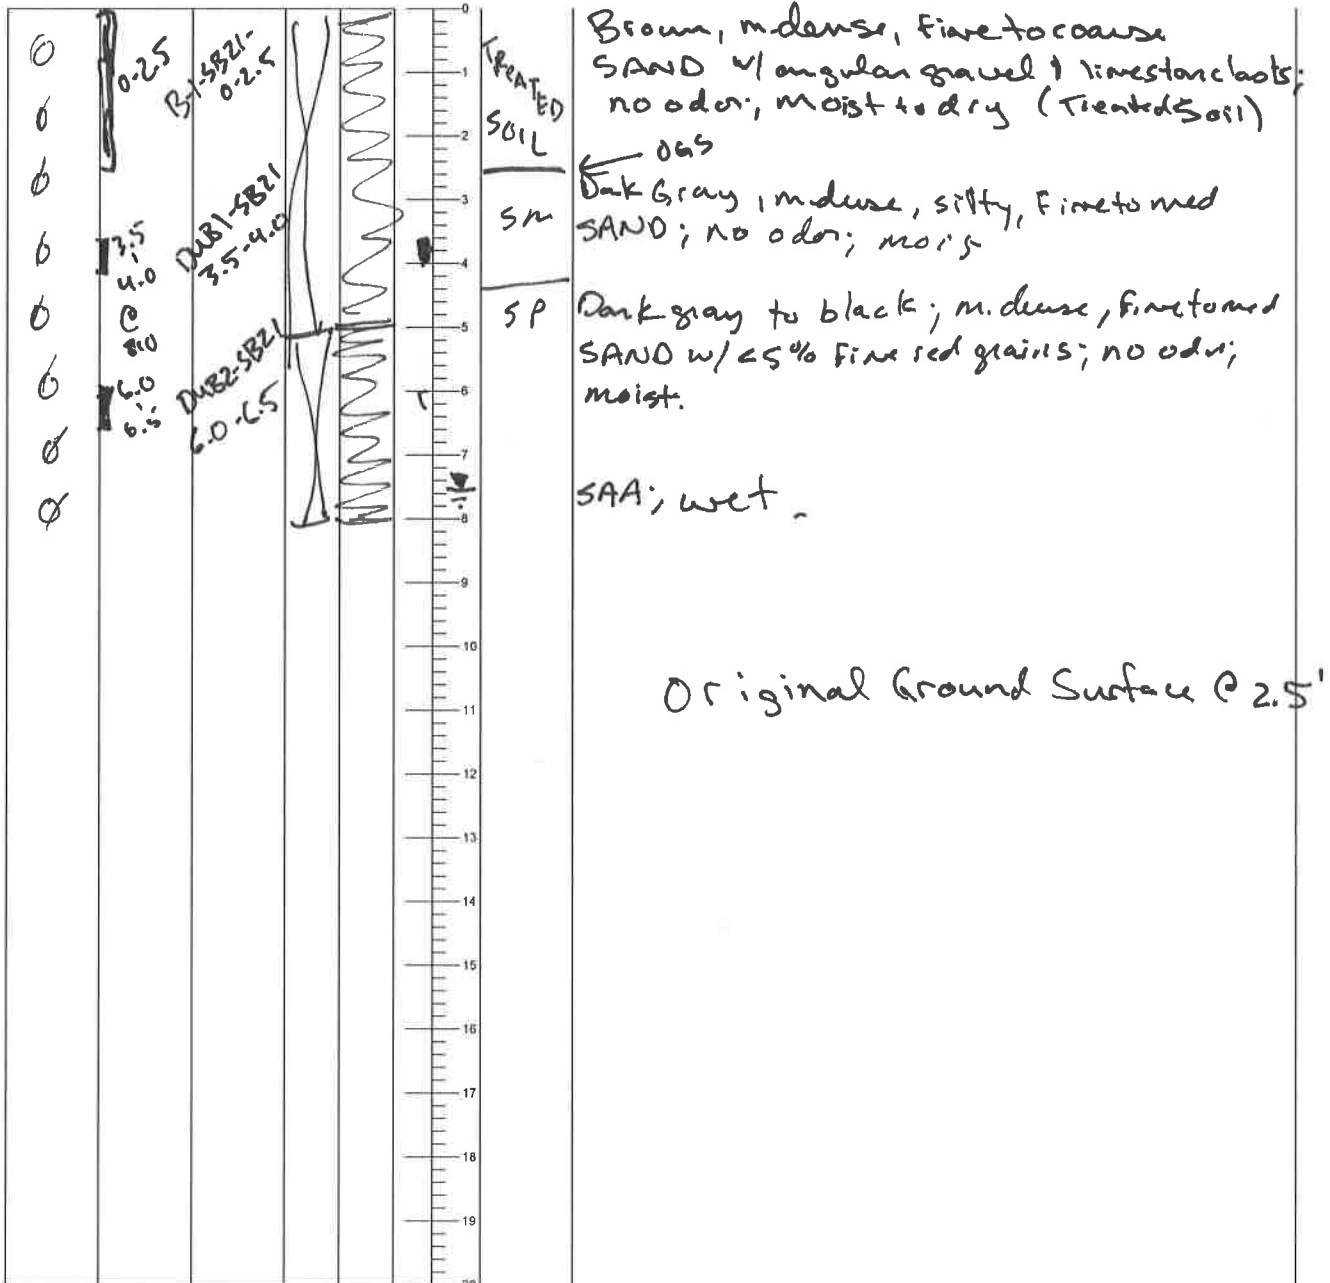 0
0
0
0
0
0
0
0
0-2.5
3.5
4.0
@
810
6.0
6.5
B-1-SB21-
0-2.5
DUB1-SB21
3.5-4.0
DUB2-SB21
6.0-6.5
0
1
2
3
4
5
6
7
8
9
10
11
12
13
14
15
16
17
18
19
20
TREATED
SOIL
SM
SP
Brown, m.dense, fine to coarse
SAND w/ angular gravel & limestone clasts;
no odor; moist to dry (Treated Soil)
OGS
Dark Gray, m.dense, silty, fine to med
SAND; no odor; mois
Dark gray to black; m.dense, fine to med
SAND w/ <5% fine red grains; no odor;
moist.
SAA; wet
Original Ground Surface @ 2.5'